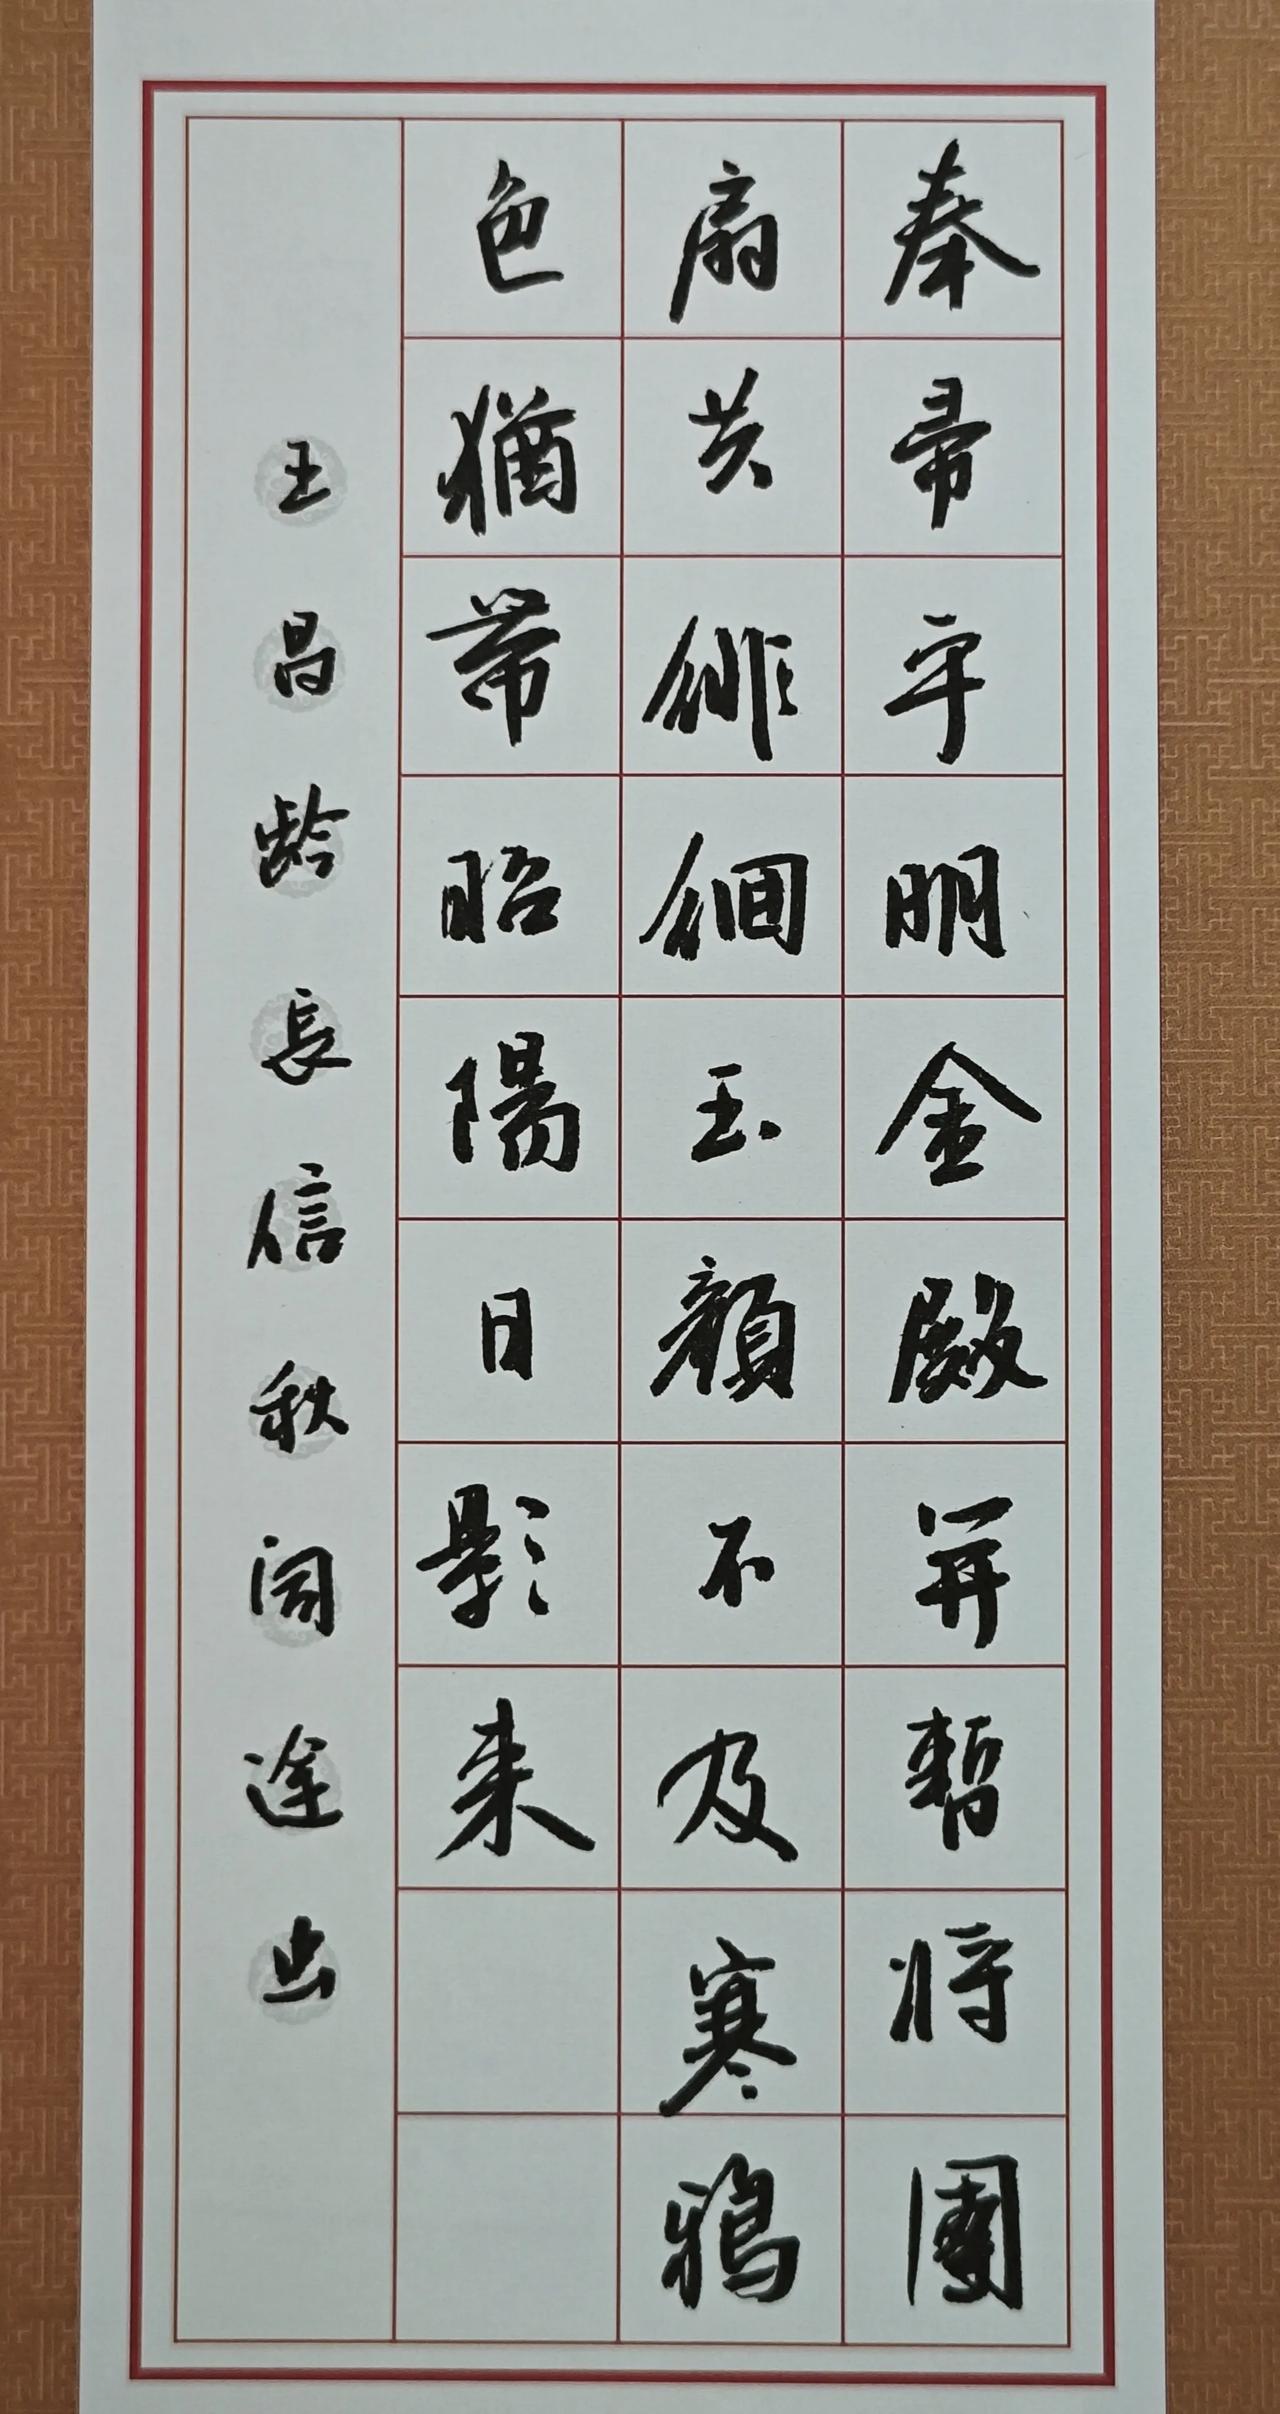 奉帚平明金殿開暫将團
扇共徘徊玉顏不及寒鴉
色猶帶昭陽日影来
王昌齡長信秋詞途出